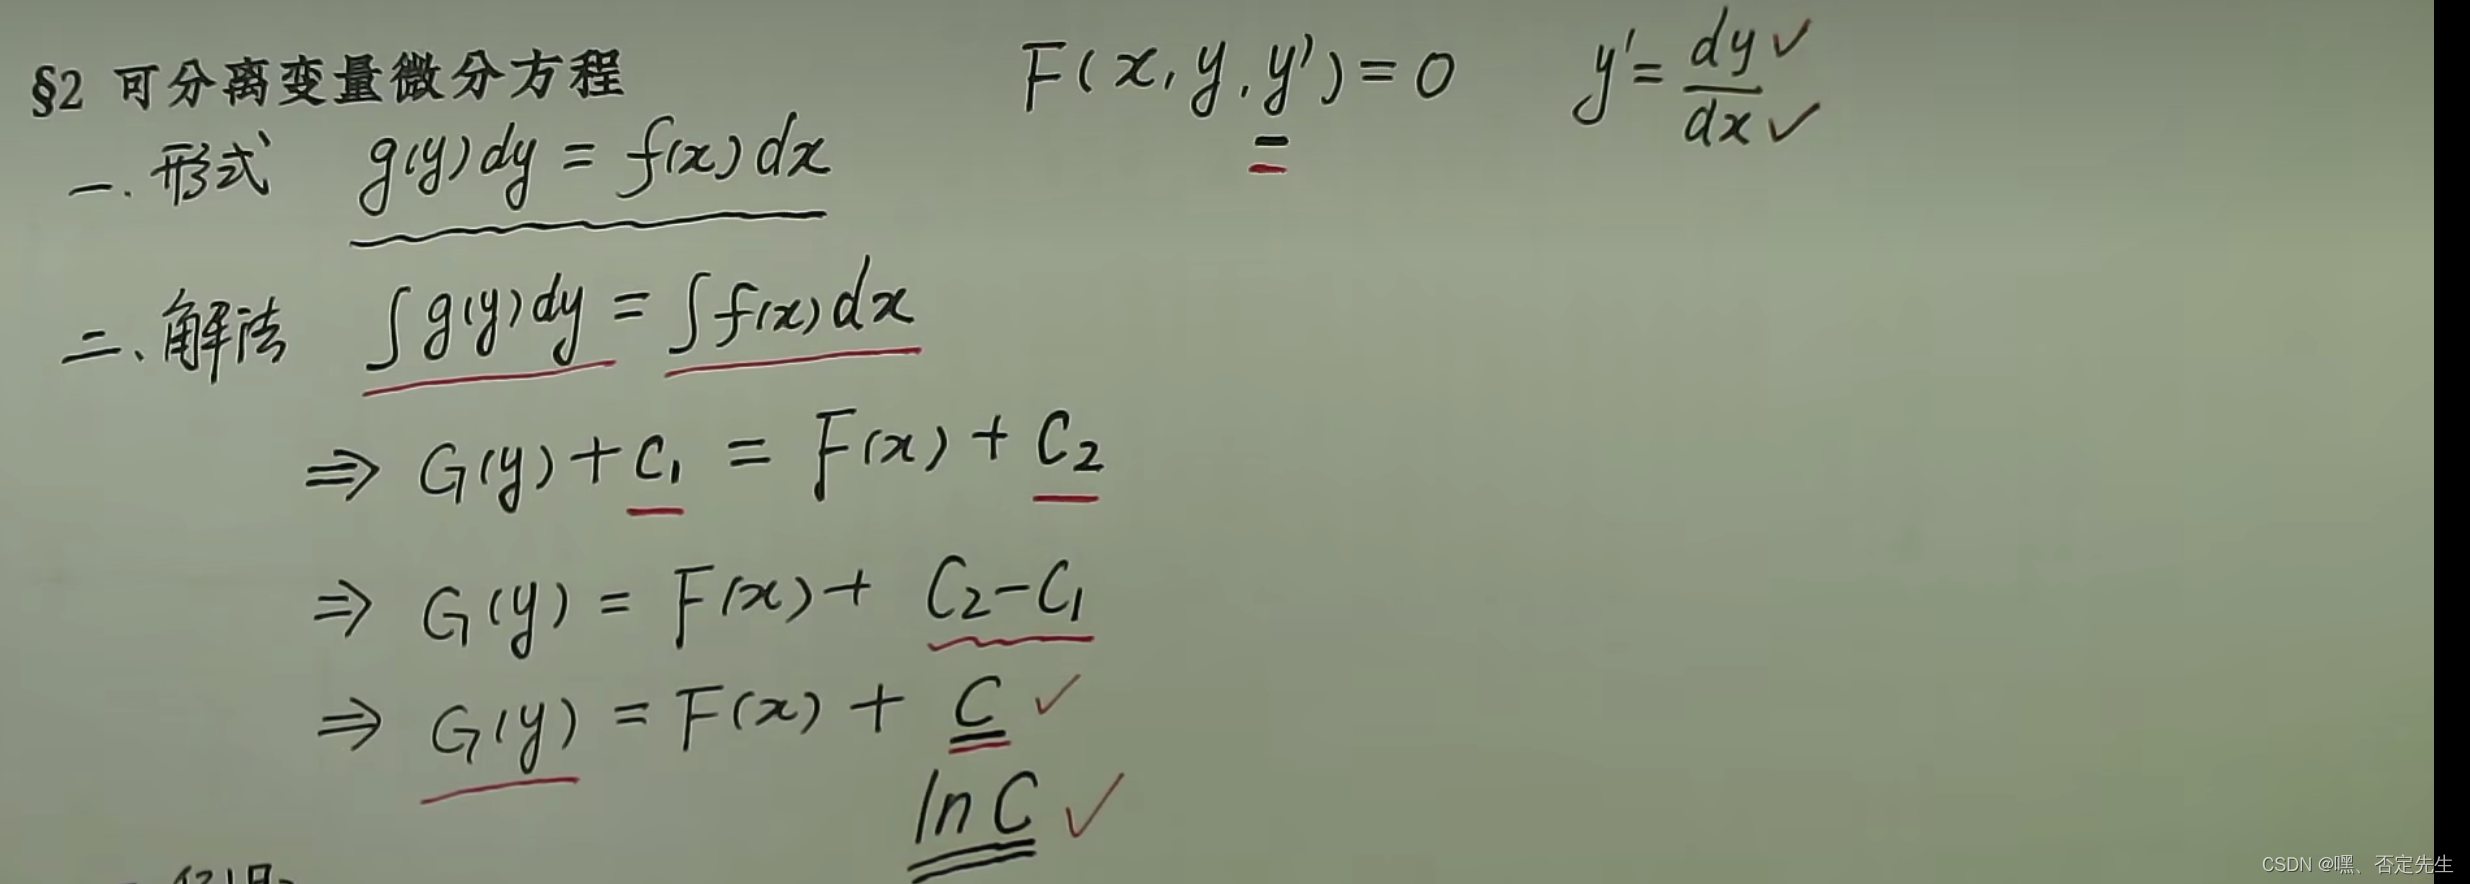 §2 可分离变量微分方程
F(x, y, y') = 0
y' = dy/dx
一. 形式 g(y)dy = f(x)dx
二、解法 ∫g(y)dy = ∫f(x)dx
⇒ G(y) + C₁ = F(x) + C₂
⇒ G(y) = F(x) + C₂-C₁
⇒ G(y) = F(x) + C
ln C
CSDN @嘿、否定先生